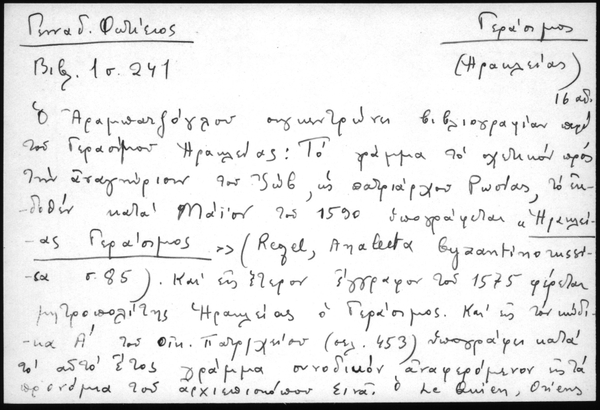 Γενναδ. Φωτίειος Γεράσιμος
Βιβλ. 1 σ. 241 (Ηρακλείας)
16 αι.
Ὁ Ἀραμπατζόγλου συγκεντρώνει βιβλιογραφίαν περὶ
τοῦ Γερασίμου Ηρακλείας: Τὸ γράμμα τὸ σχετικὸν πρὸς
τὴν ἀναγνώρισιν τοῦ Ἰώβ, ὡς πατριάρχου Ρωσίας, τὸ ἐκ-
-δοθὲν κατὰ Μάϊον τοῦ 1590 ὑπογράφεται « Ἡρακλεί-
-ας Γεράσιμος >> (Regel, Analecta Byzantinorussi-
-ca σ. 85). Καὶ εἰς ἕτερον ἔγγραφον τοῦ 1575 φέρεται
μητροπολίτης Ηρακλείας ὁ Γεράσιμος. Καὶ εἰς τὸν κώδι-
-κα Α' τοῦ Οἰκ. Πατρ/χείου (σελ. 453) ὑπογράφει κατὰ
τὸ αὐτὸ ἔτος γράμμα συνοδικὸν ἀναφερόμενον εἰς τὰ
προνόμια τοῦ ἀρχιεπισκόπου Σινᾶ. Ὁ Le Quien, Oriens